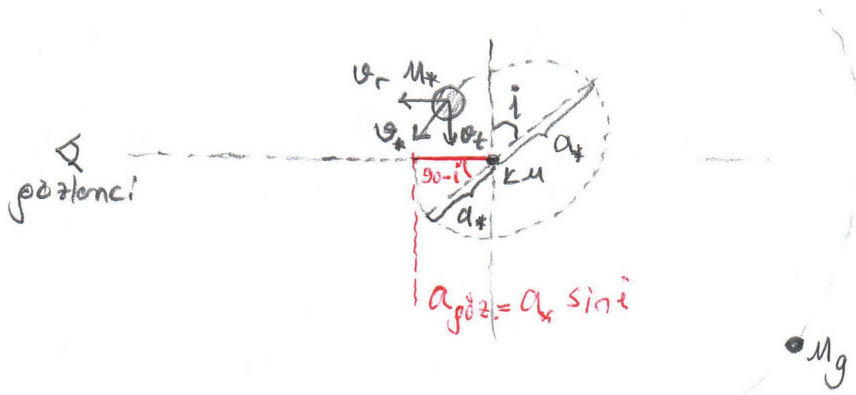 ϑr M*
i
ϑ* ϑt a*
gözlemci
90-i KM
a*
a göz = a* sin i
Mg